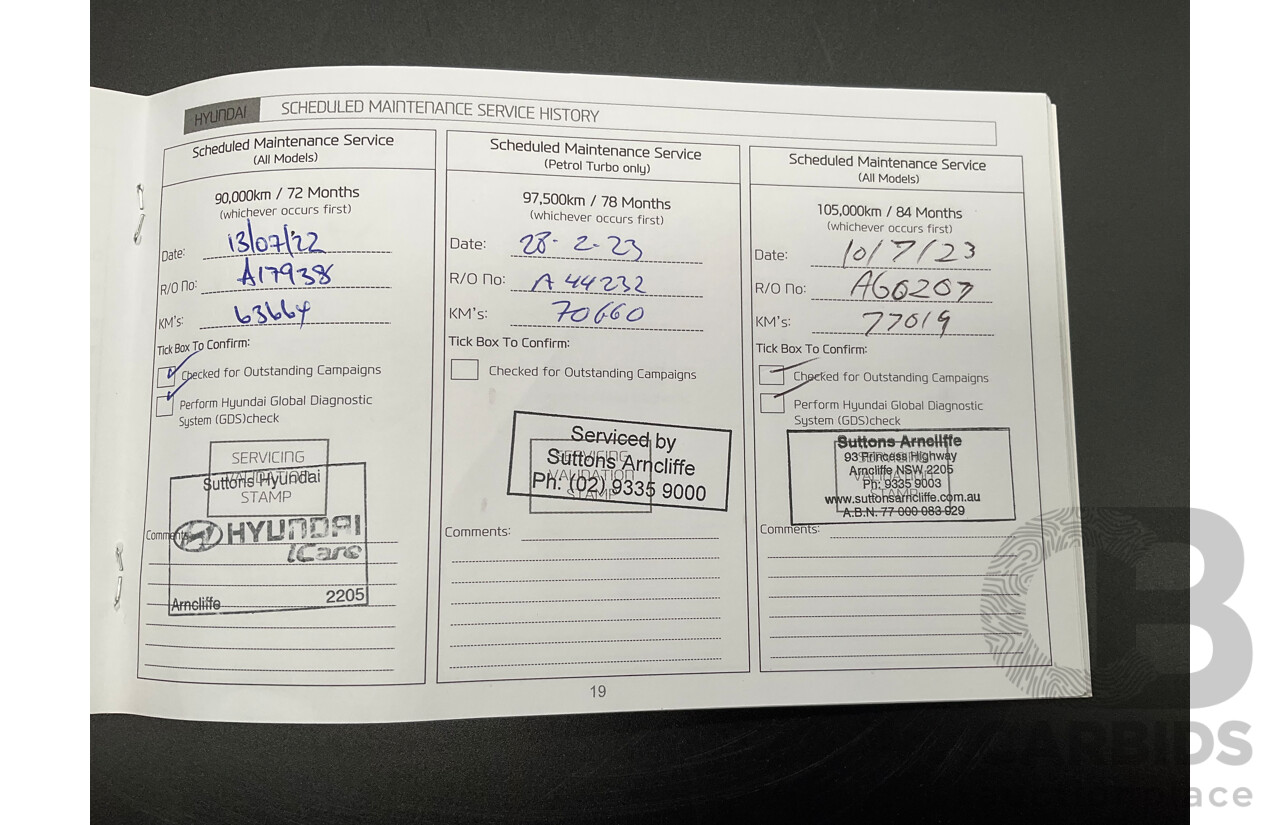 HYUNDAI SCHEDULED MAINTENANCE SERVICE HISTORY
Scheduled Maintenance Service
(All Models)
90,000km / 72 Months
(whichever occurs first)
Date: 13/07/22
R/O No: A17938
KM's: 63664
Tick Box To Confirm:
Checked for Outstanding Campaigns
Perform Hyundai Global Diagnostic
System (GDS)check
SERVICING
VALIDATION
STAMP
Suttons Hyundai
HYUNDAI
iCare
Arncliffe 2205
Comments:
Scheduled Maintenance Service
(Petrol Turbo only)
97,500km / 78 Months
(whichever occurs first)
Date: 28-2-23
R/O No: A44232
KM's: 70660
Tick Box To Confirm:
Checked for Outstanding Campaigns
SERVICING
VALIDATION
STAMP
Serviced by
Suttons Arncliffe
Ph: (02) 9335 9000
Comments:
Scheduled Maintenance Service
(All Models)
105,000km / 84 Months
(whichever occurs first)
Date: 10/7/23
R/O No: A60207
KM's: 77019
Tick Box To Confirm:
Checked for Outstanding Campaigns
Perform Hyundai Global Diagnostic
System (GDS)check
Suttons Arncliffe
93 Princess Highway
Arncliffe NSW 2205
Ph: 9335 9003
www.suttonsarncliffe.com.au
A.B.N. 77 000 083 929
Comments:
19
CARBIDS